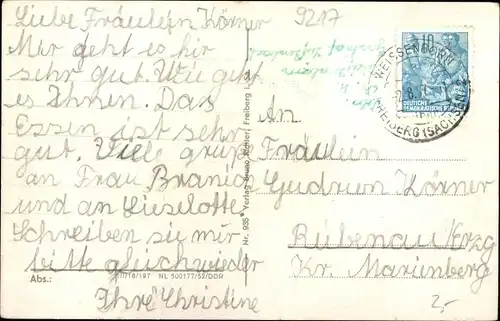 Liebe Fräulein Körner
Mir geht es hir
sehr gut. Wie geht
es Ihnen. Das
Essen ist sehr
gut. Viele grüße
an Frau
und an Lieselotte
Schreiben sie mir
bitte gleich wieder
Ihre Christine
9217
10
WEISSENBORN
FREIBERG (SACHS)
DEUTSCHE
DEMOKRATISCHE REPUBLIK
An
Fräulein
Gudrun Körner
Rübenau/Erzg
Kr. Marienberg
Nr. 935 Verlag Bruno Köhler, Freiberg i. Sa.
III/18/197 NL 500177/52/DDR
Abs.:
2,-